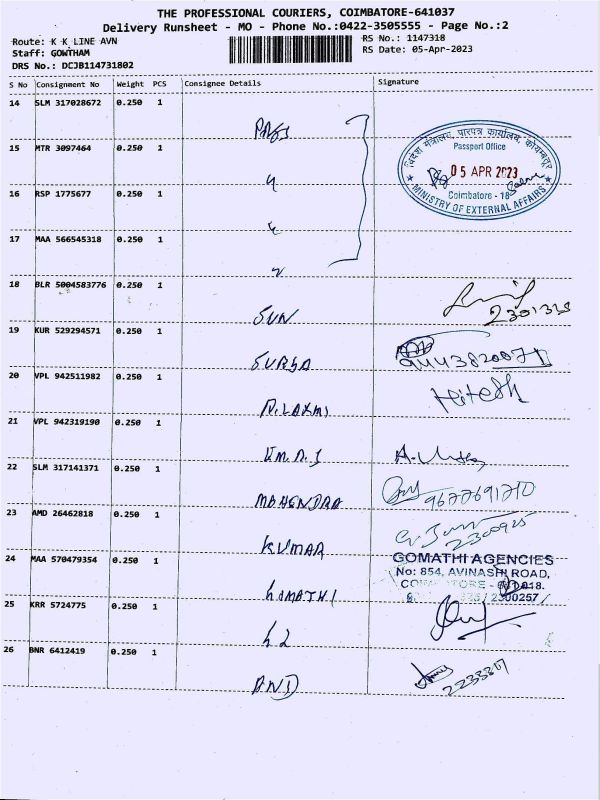 THE PROFESSIONAL COURIERS, COIMBATORE-641037
Delivery Runsheet - MO - Phone No.:0422-3505555 - Page No.:2
Route: K K LINE AVN
RS No.: 1147318
Staff: GOWTHAM
RS Date: 05-Apr-2023
DRS No.: DCJB114731802
S No Consignment No Weight PCS Consignee Details Signature
14 SLM 317028672 0.250 1
15 MTR 3097464 0.250 1
विदेश मंत्रालय, पारपत्र कार्यालय, कोयम्बतूर
Passport Office
05 APR 2023
Coimbatore - 18
MINISTRY OF EXTERNAL AFFAIRS
16 RSP 1775677 0.250 1
17 MAA 566545318 0.250 1
18 BLR 5004583776 0.250 1
SUN
19 KUR 529294571 0.250 1
SURYA
20 VPL 942511982 0.250 1
Hitesh
N.LAXMI
21 VPL 942319190 0.250 1
22 SLM 317141371 0.250 1
MAHENDRA 9677691710
23 AMD 26462818 0.250 1
2300925
KUMAR
24 MAA 570479354 0.250 1
GOMATHI AGENCIES
No: 854, AVINASHI ROAD,
GOMATHI
25 KRR 5724775 0.250 1
26 BNR 6412419 0.250 1